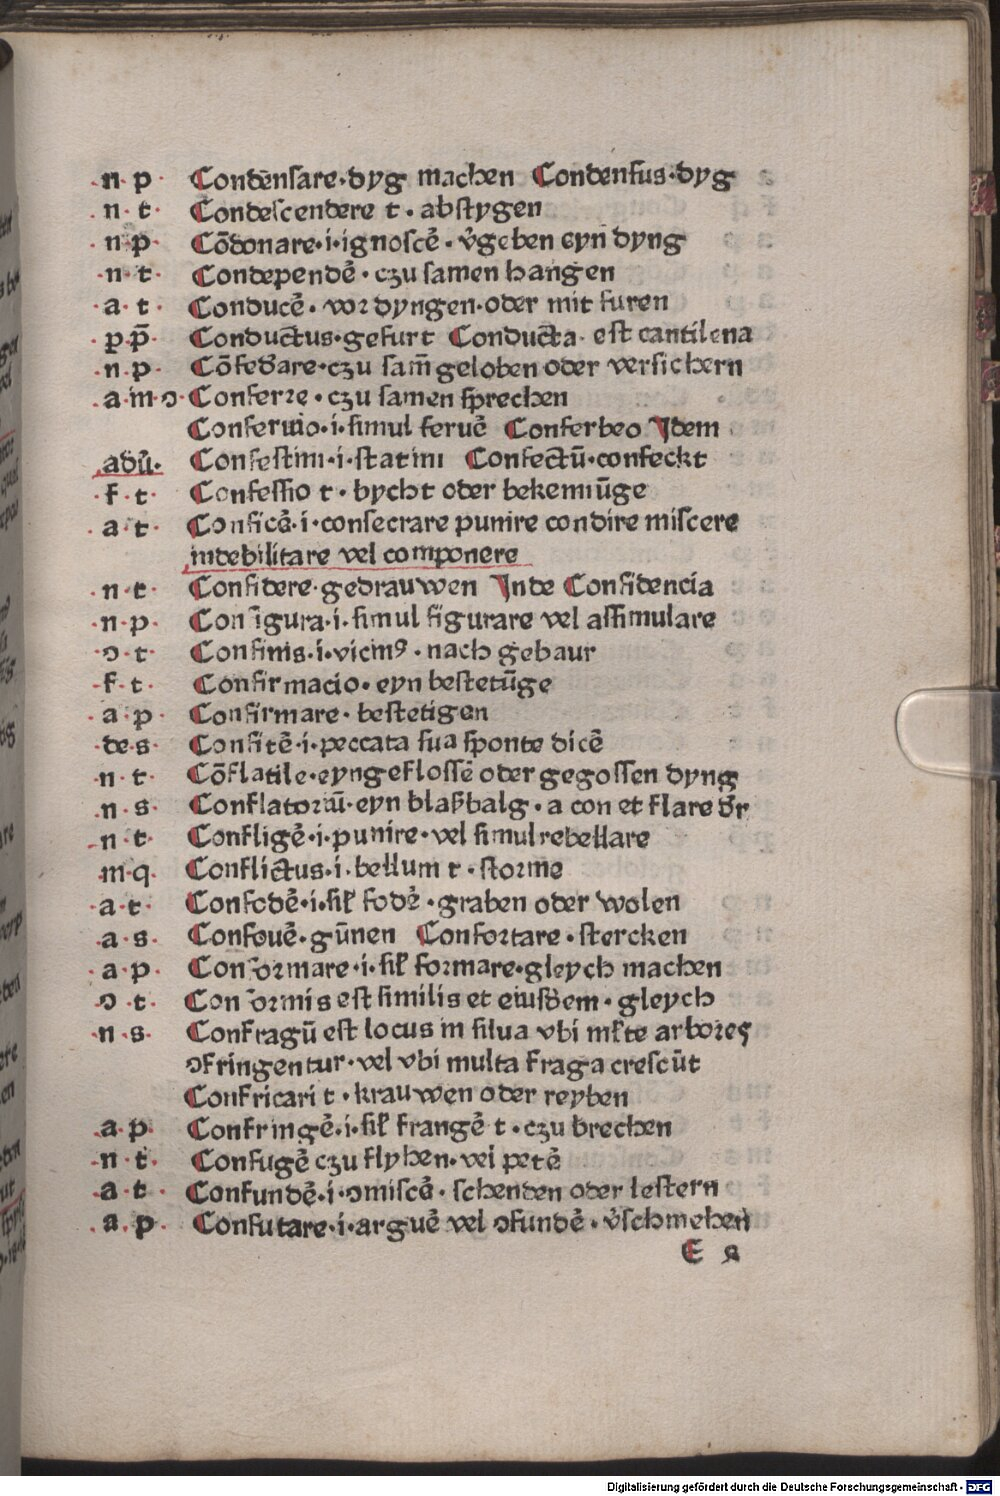 ·n· p· Condēnsare·dyg machen Condensus·dyg
·n· t· Condescendere t·abstygen
·n·p· Cōdonare·i·ignoscē·v̓geben eyn dyng
·n·t· Condependē·czu samen hangen
·a·t· Conducē·vor dyngen·oder mit furen
·p·p̄· Conductus·gefurt Conducta·est cantilena
·n·p· Cōfed̓are·czu sam̄ geloben oder versichern
·a·m·ɔ· Conferre·czu samen sprechen
Conferuio·i·simul feruē Conferbeo Idem
adū· Confestim·i·statim Confectū·confeckt
·f·t· Confessio t·bycht oder bekennūge
·a·t· Conficē·i·consecrare punire condire miscere
indebilitare vel componere
·n·t· Confidere·gedrauwen Inde Confidencia
·n·p· Configura·i·simul figurare vel assimulare
·ɔ·t· Confinis·i·vicinꝰ·nach gebaur
·f·t· Confirmacio·eyn bestetūge
·a·p· Confirmare·bestetigen
·de·s· Confitē·i·peccata sua sponte dicē
·n·t· Cōflatile·eyngeflossē oder gegossen dyng
·n·s· Conflatoriū·eyn blaßbalg·a con et flare dr̄
·n·t· Confligē·i·punire·vel simul rebellare
·m·q· Conflictus·i·bellum t·storme
·a·t· Confodē·i·sil̓ fodē·graben oder wolen
·a·s· Confouē·gūnen Confortare·stercken
·a·p· Conformare·i·sil̓ formare·gleych machen
·ɔ·t· Conformis est similis et eiusdem·gleych
·n·s· Confragū est locus in silua vbi ml̓te arbores
ɔfringentur·vel vbi multa fraga crescūt
Confricari t·krauwen oder reyben
·a·p· Confringē·i·sil̓ frangē t·czu brechen
·n·t· Confugē czu flyhen·vel petē
·a·t· Confundē·i·ɔmiscē·schenden oder lestern
·a·p· Confutare·i·arguē vel ɔfundē·v̓schmehen
E
Digitalisierung gefördert durch die Deutsche Forschungsgemeinschaft - DFG